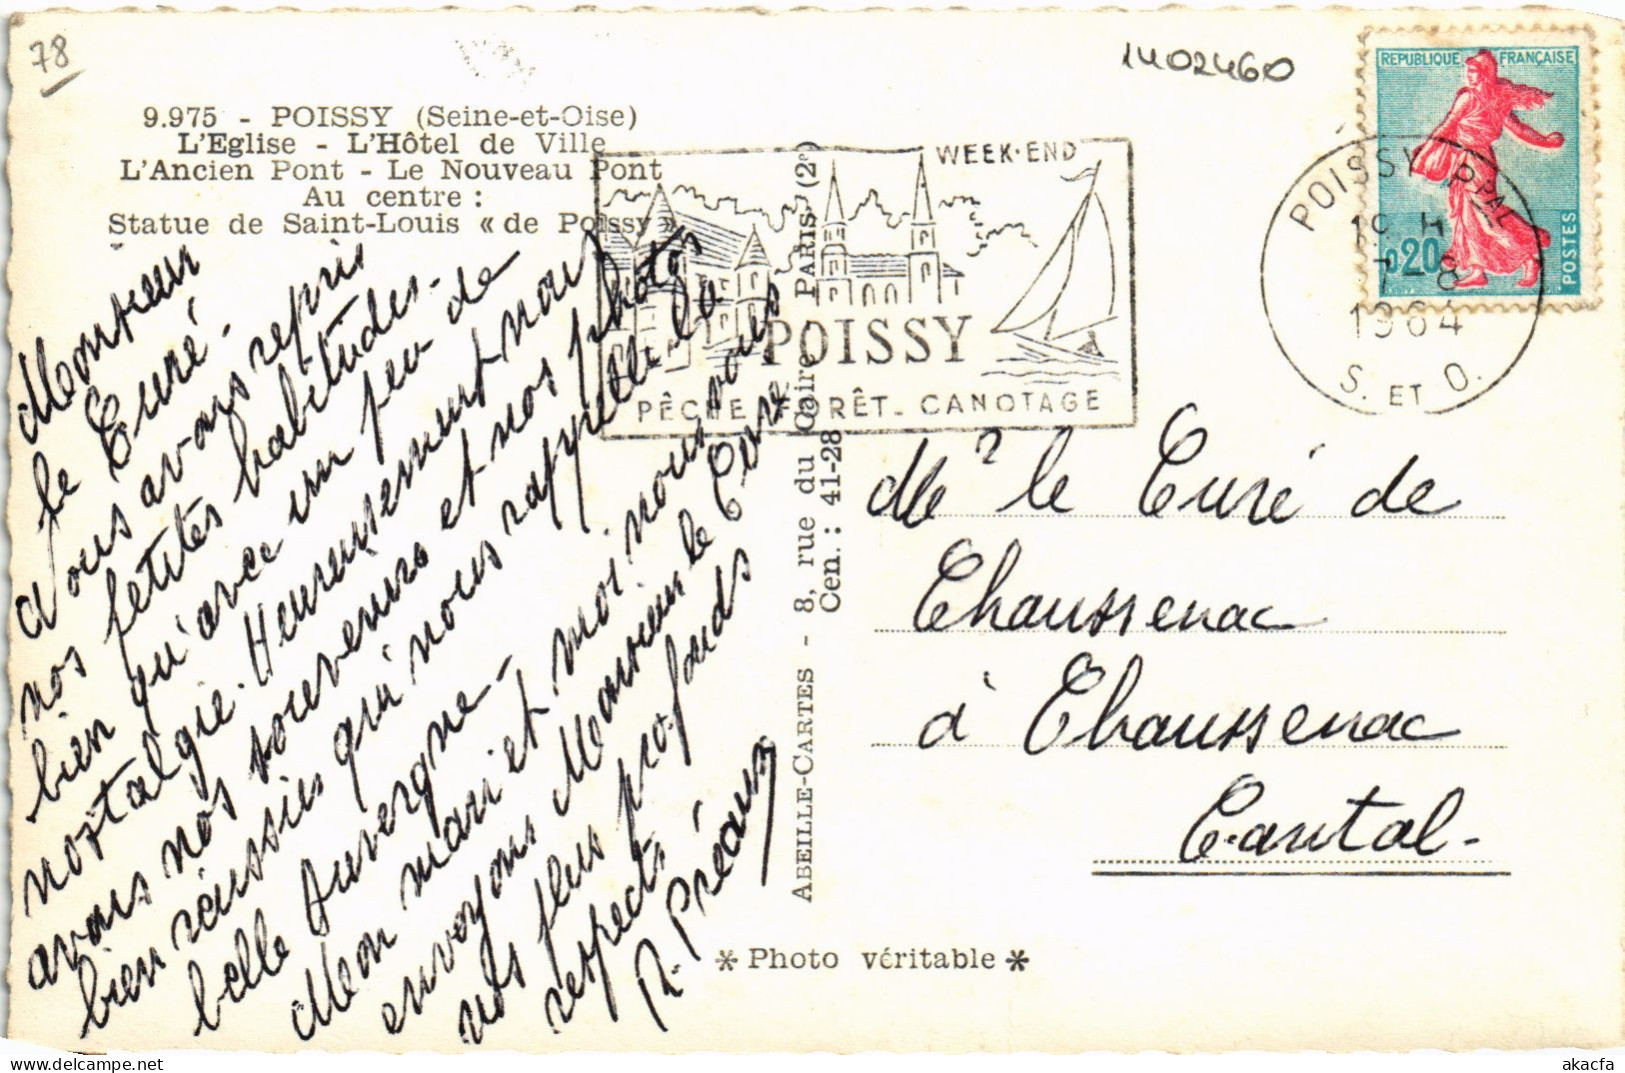 78
1402460
9.975 - POISSY (Seine-et-Oise)
L'Eglise - L'Hôtel de Ville
L'Ancien Pont - Le Nouveau Pont
Au centre :
Statue de Saint-Louis « de Poissy »
WEEK-END
POISSY
PÊCHE FORÊT - CANOTAGE
REPUBLIQUE FRANÇAISE
0,20
POSTES
POISSY PPAL
7-8
1964
S. ET O.
Monsieur
le Curé -
Nous avons repris
nos petites habitudes -
bien qu'avec un peu de
nostalgie. Heureusement nous
avons nos souvenirs et nos photos
bien réussies qui nous rappelle la
belle Auvergne -
Mon mari et moi nous vous
envoyons Monsieur le Curé
nos plus profonds
respects
R. Préaux
ABEILLE-CARTES - 8, rue du Caire - PARIS (2e)
Cen. : 41-28
Mr le Curé de
Chaussenac
à Chaussenac
Cantal -
* Photo véritable *
akacfa